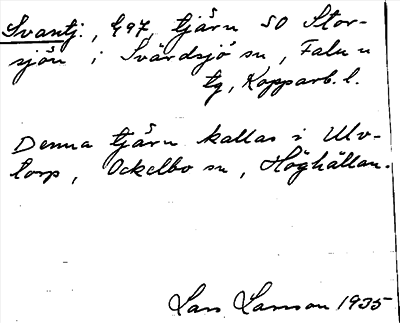 Svartj., G97, tjärn SO Stor-
sjön i Svärdsjö sn, Falu n
tg, Kopparb. l.
Denna tjärn kallas i Ulv-
torp, Ockelbo sn, Höghällan.
Lars Larsson 1935